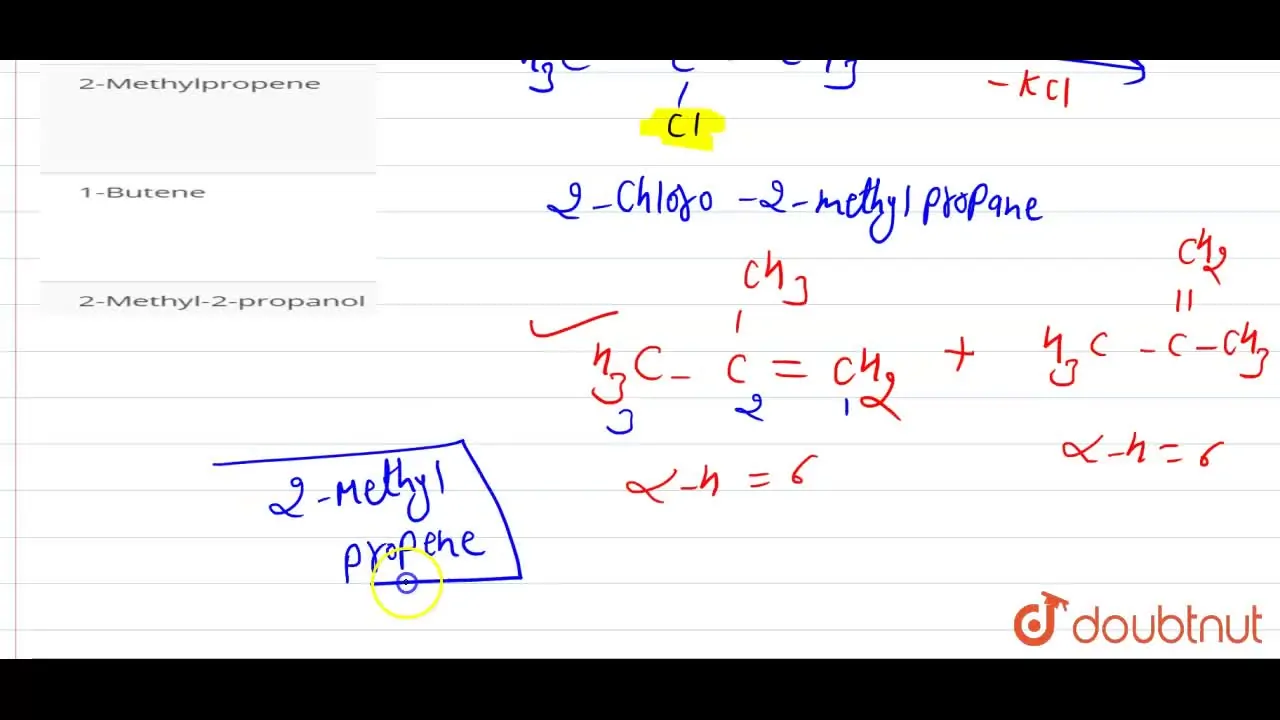 2-Methylpropene
1-Butene
2-Methyl-2-propanol
H3C C CH3
Cl
-KCl
2-Chloro-2-methylpropane
CH3
H3C - C = CH2
3 2 1
α-H = 6
+
CH2
||
H3C - C - CH3
α-H = 6
2-Methyl
propene
doubtnut